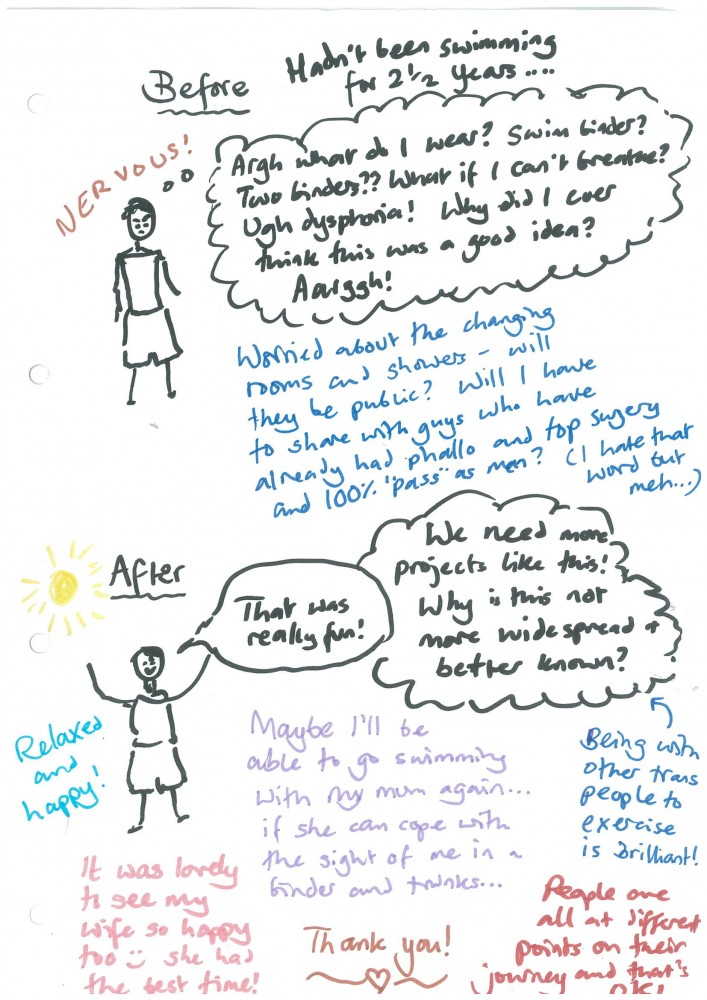 Before
Hadn't been swimming
for 2 1/2 years....
NERVOUS!
Argh what do I wear? Swim binder?
Two binders?? What if I can't breathe?
Ugh dysphoria! Why did I ever
think this was a good idea?
Aarggh!
Worried about the changing
rooms and showers - will
they be public? Will I have
to share with guys who have
already had phallo and top surgery
and 100% "pass" as men? (I hate that
word but
meh...)
After
That was
really fun!
We need more
projects like this!
Why is this not
more widespread +
better known?
Relaxed
and
happy!
Maybe I'll be
able to go swimming
with my mum again...
if she can cope with
the sight of me in a
binder and trunks...
Being with
other trans
people to
exercise
is brilliant!
It was lovely
to see my
wife so happy
too she had
the best time!
Thank you!
People are
all at different
points on their
journey and that's
OK!